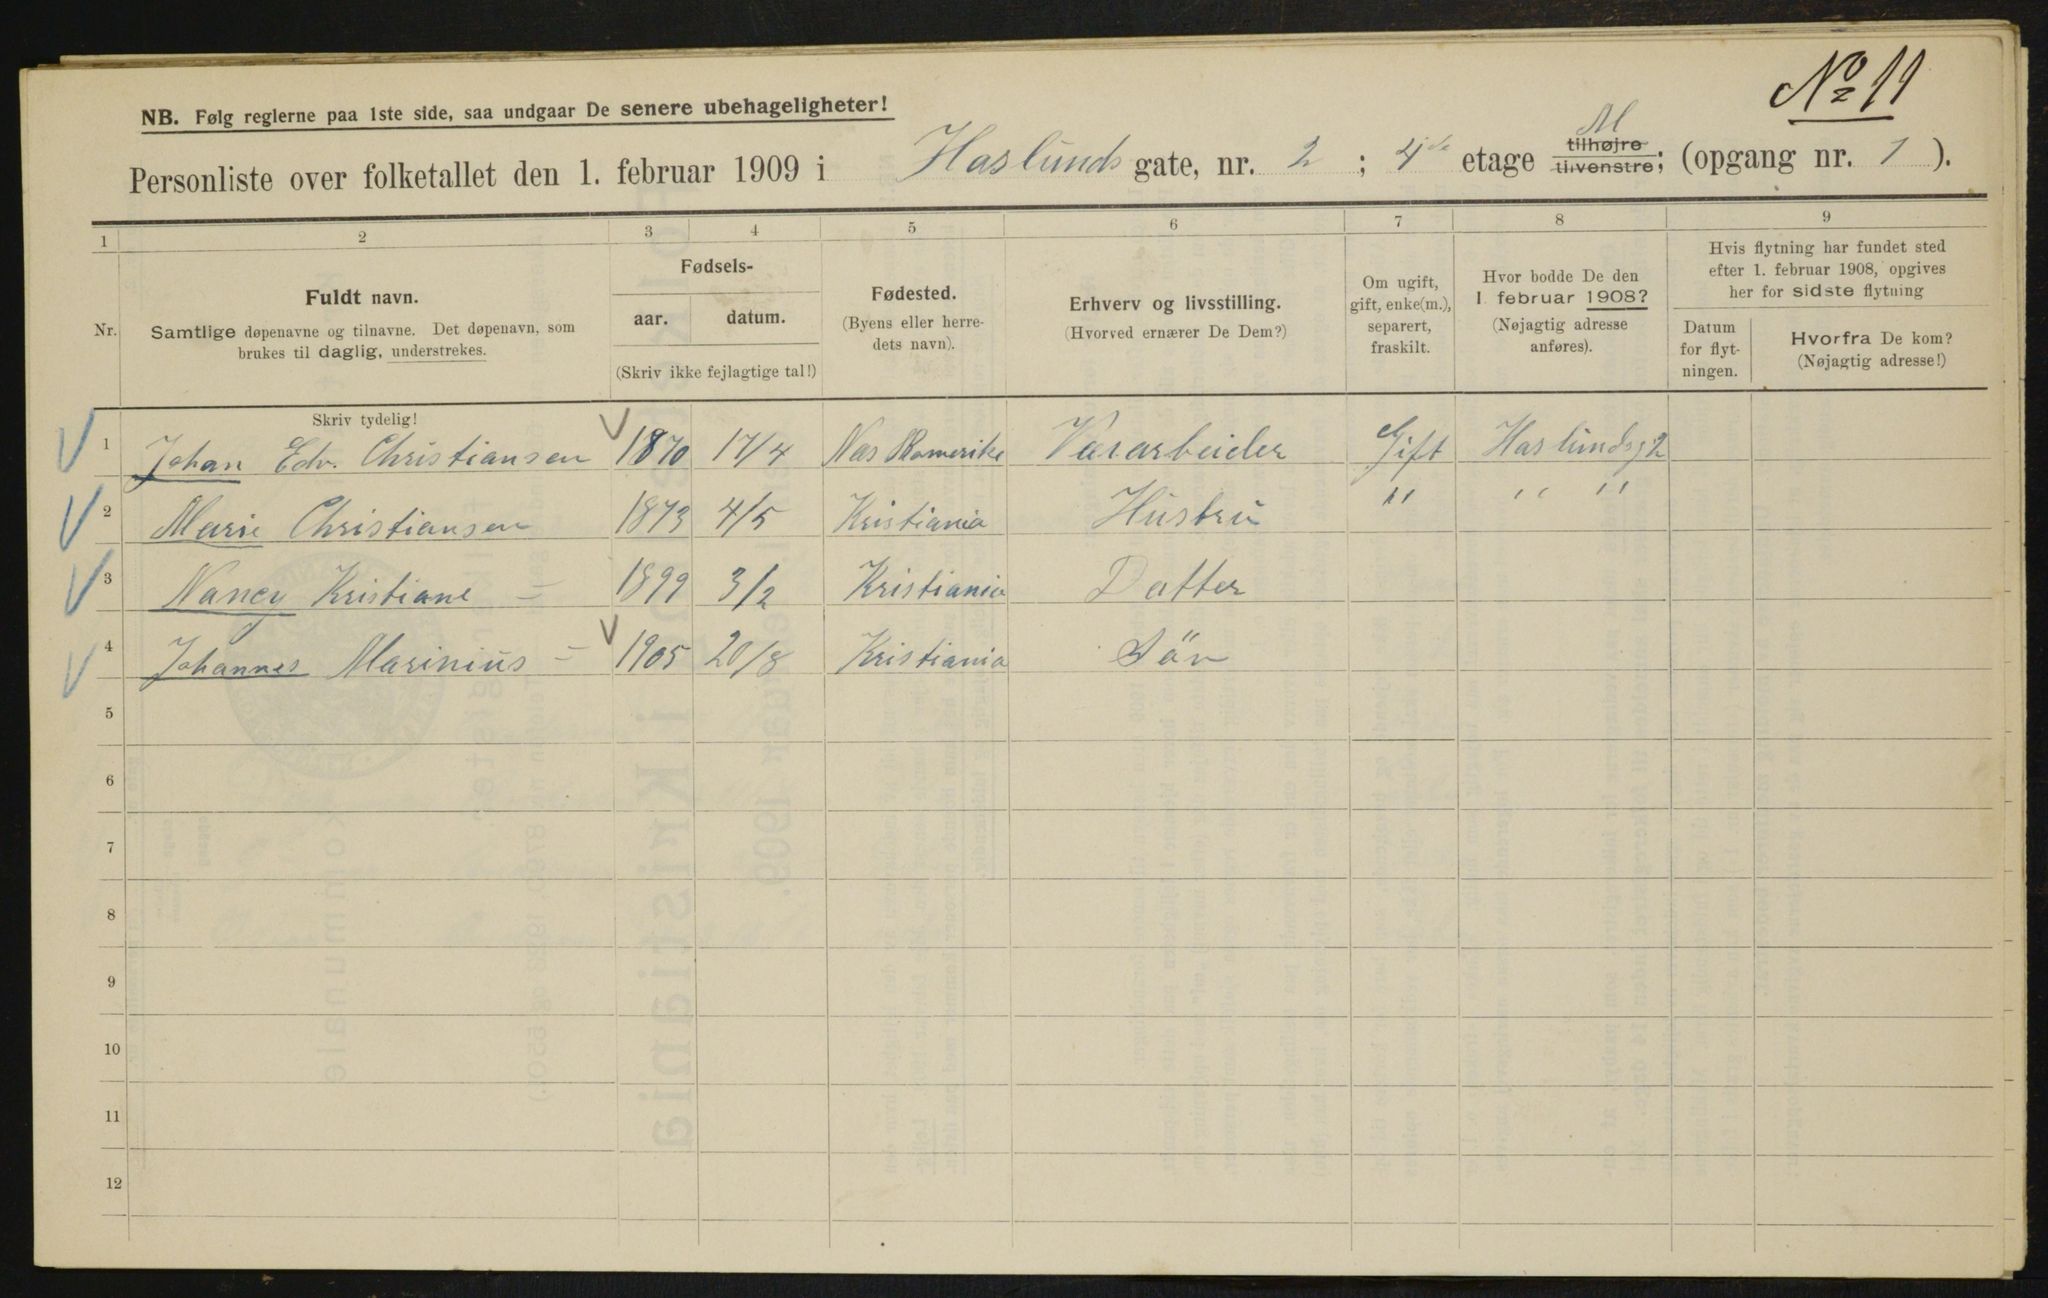 No 11
NB. Følg reglerne paa 1ste side, saa undgaar De senere ubehageligheter!
Personliste over folketallet den 1. februar 1909 i Haslunds gate, nr. 2 ; 4de etage tilhøjre tilvenstre; M (opgang nr. 1 ).
1 2 3 4 5 6 7 8 9
Nr.
Fuldt navn.
Samtlige døpenavne og tilnavne. Det døpenavn, som
brukes til daglig, understrekes.
Fødsels-
aar. datum.
(Skriv ikke fejlagtige tal!)
Fødested.
(Byens eller herre-
dets navn).
Erhverv og livsstilling.
(Hvorved ernærer De Dem?)
Om ugift,
gift, enke(m.),
separert,
fraskilt.
Hvor bodde De den
1. februar 1908?
(Nøjagtig adresse
anføres).
Hvis flytning har fundet sted
efter 1. februar 1908, opgives
her for sidste flytning
Datum
for flyt-
ningen.
Hvorfra De kom?
(Nøjagtig adresse!)
Skriv tydelig!
1 Johan Edv. Christiansen 1870 17/4 Nas Romerike Værarbeider Gift Haslundsg 2
2 Marie Christiansen 1873 4/5 Kristiania Hustru " " "
3 Nancy Kristiane = 1899 3/2 Kristiania Datter
4 Johannes Marinius = 1905 20/8 Kristiania Sön
5
6
7
8
9
10
11
12